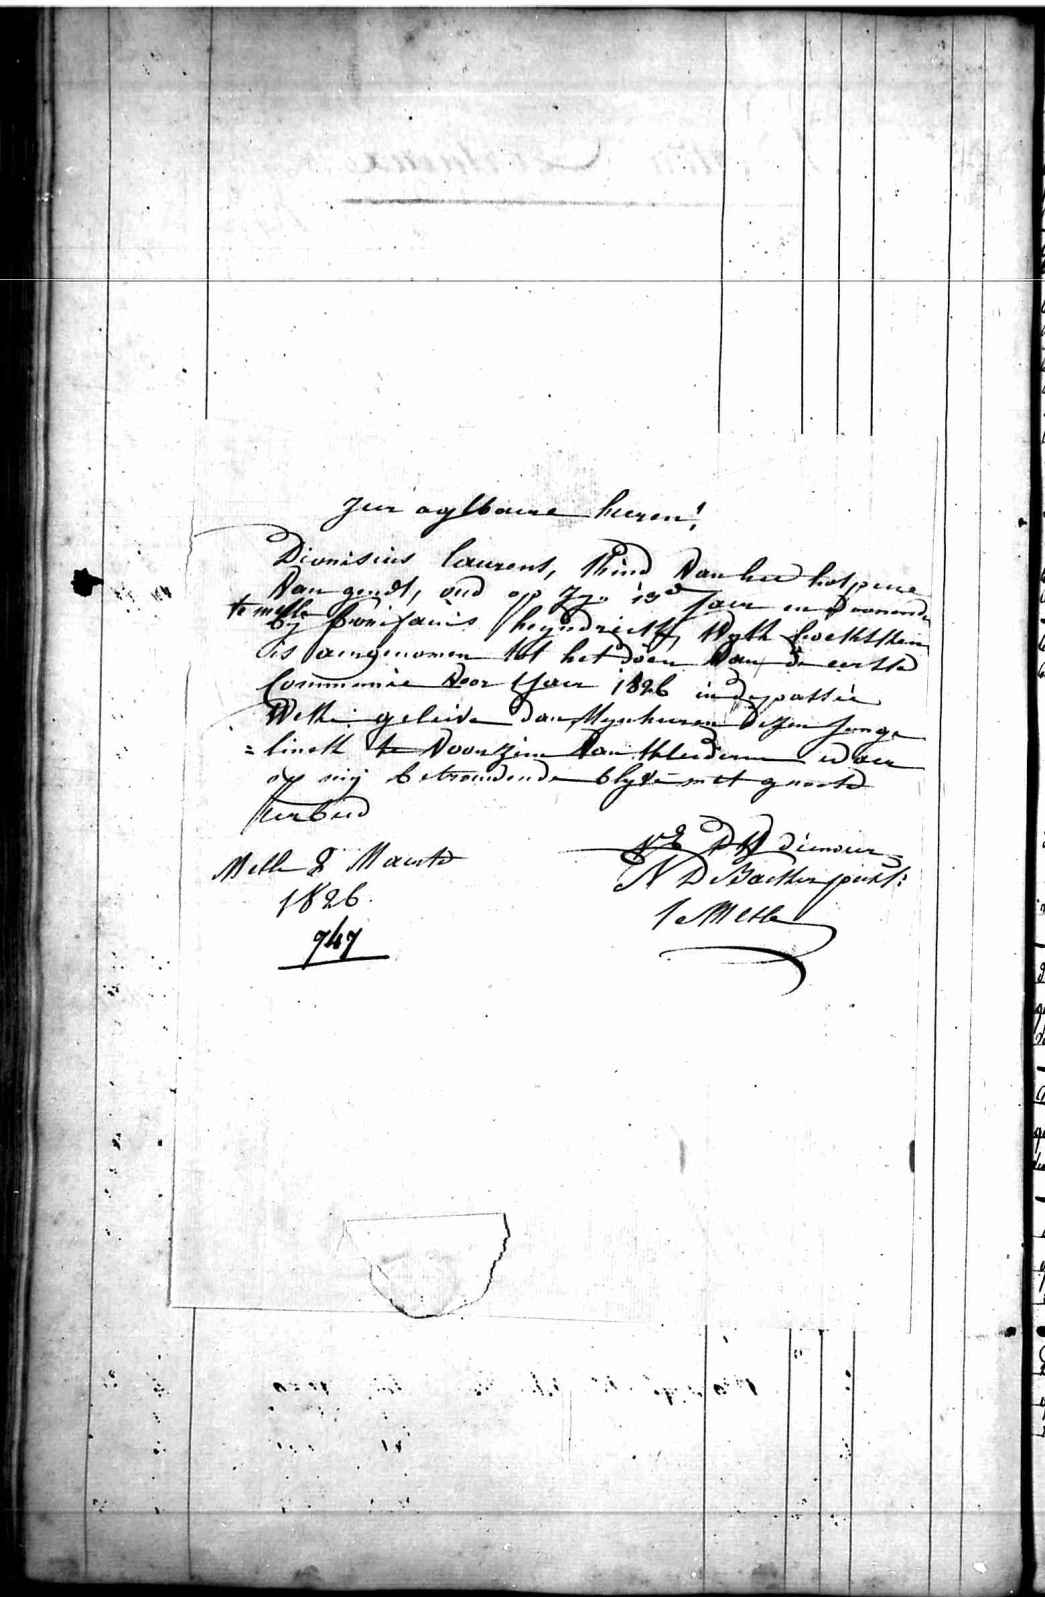 Zeer agtbaere heeren!
Dionisius Laurens, kind van het hospice
van gendt, oud op zyn 13de jaer en woonende
te melle
by bonifacius heyndrickx, wyk
is aengenomen tot het doen van de eerste
Communie voor t'jaer 1826 in de passie
Welke gelieve dan Mynheeren dezen jonge
=linck te voorzien van kleederen waer
op mij betrouwende blyve met groote
eerbied
Melle 8 Maerte
1826.
947
UE DW dienaer
N D Backer past:
te Melle